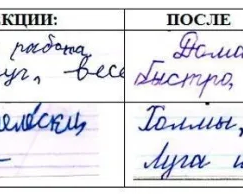 КЦИИ: ПОСЛЕ
работа Дома
уг, весе Быстро,
Холмы,
Луга и